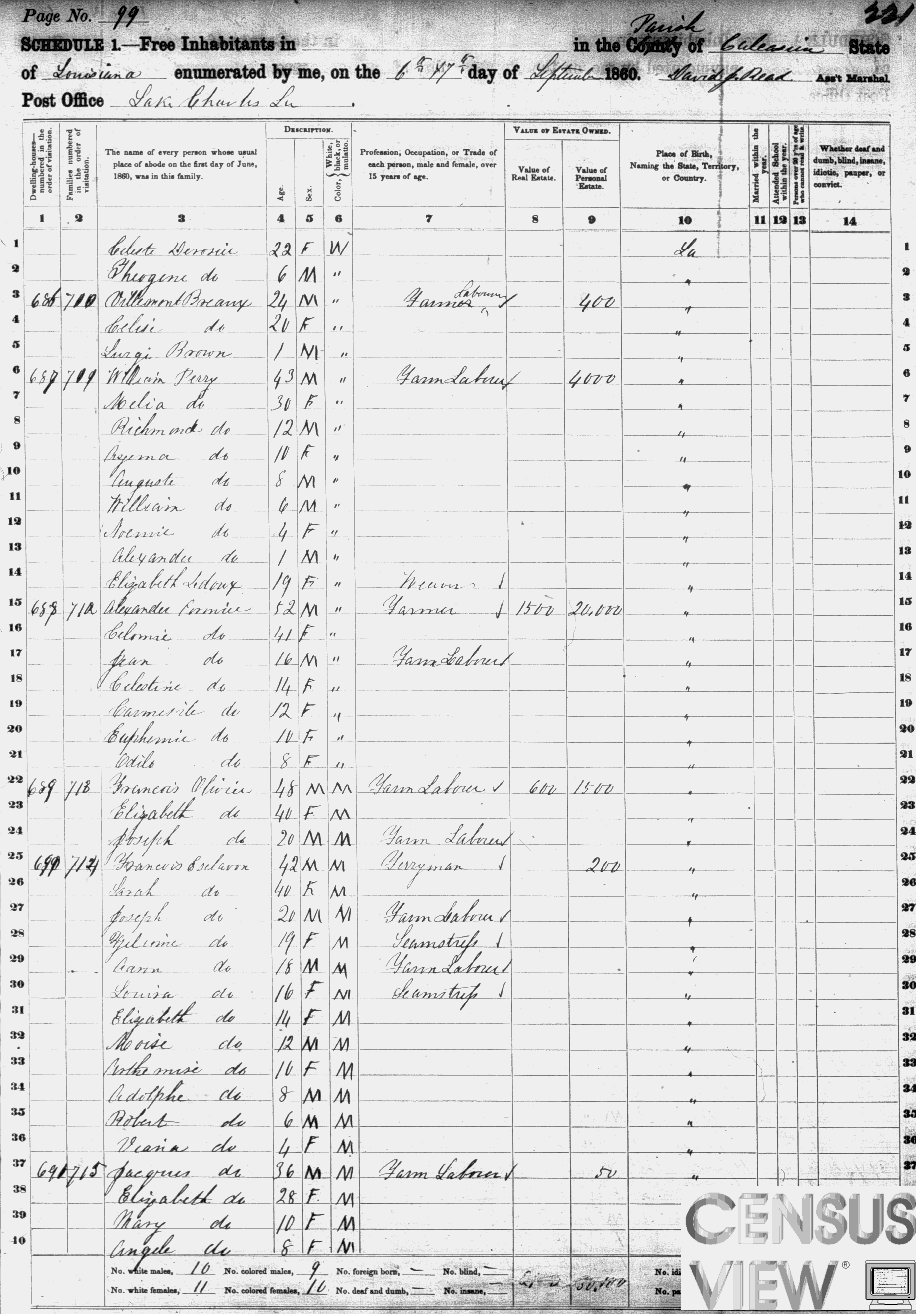 Page No. 99
221
SCHEDULE 1.—Free Inhabitants in in the County of Parish Calcasieu State
of Louisiana enumerated by me, on the 6th & 7th day of September 1860. David J. Read Ass't Marshal.
Post Office Lake Charles La.
Dwelling-houses—numbered in the order of visitation.
Families numbered in the order of visitation.
The name of every person whose usual place of abode on the first day of June, 1860, was in this family.
DESCRIPTION.
Age.
Sex.
Color, White, black, or mulatto.
Profession, Occupation, or Trade of each person, male and female, over 15 years of age.
VALUE OF ESTATE OWNED.
Value of Real Estate.
Value of Personal Estate.
Place of Birth, Naming the State, Territory, or Country.
Married within the year.
Attended School within the year.
Persons over 20 y'rs of age who cannot read & write.
Whether deaf and dumb, blind, insane, idiotic, pauper, or convict.
1 2 3 4 5 6 7 8 9 10 11 12 13 14
1 Celeste Derosier 22 F W La 1
2 Theogene do 6 M " " 2
3 686 710 Villemont Breaux 24 M " Farm Labourer 400 " 3
4 Celise do 20 F " " 4
5 Brown 1 M " " 5
6 687 711 William Perry 43 M " Farm Laborer 4000 " 6
7 Melia do 30 F " " 7
8 Richmond do 12 M " " 8
9 Azema do 10 F " " 9
10 Auguste do 8 M " " 10
11 William do 6 M " " 11
12 Noemie do 4 F " " 12
13 Alexander do 1 M " " 13
14 Elizabeth Ledoux 19 F " Weaver " 14
15 688 712 Alexander Cormier 52 M " Farmer 1500 20,000 " 15
16 Celomie do 41 F " " 16
17 Jean do 16 M " Farm Laborer " 17
18 Celestine do 14 F " " 18
19 Carmesile do 12 F " " 19
20 Euphemie do 10 F " " 20
21 Odile do 8 F " " 21
22 689 713 Francois Olivier 48 M M Farm Laborer 600 1500 " 22
23 Elizabeth do 40 F M " 23
24 Joseph do 20 M M Farm Laborer " 24
25 690 714 Francois Esclavon 42 M M Ferryman 200 " 25
26 Sarah do 40 F M " 26
27 Joseph do 20 M M Farm Laborer " 27
28 do 19 F M Seamstress " 28
29 Aaron do 18 M M Farm Laborer " 29
30 Louisa do 16 F M Seamstress " 30
31 Elizabeth do 14 F M " 31
32 Moise do 12 M M " 32
33 Arthemise do 10 F M " 33
34 Adolphe do 8 M M " 34
35 Robert do 6 M M " 35
36 do 4 F M " 36
37 691 715 Jacques do 36 M M Farm Laborer 50 " 37
38 Elizabeth do 28 F M
39 Mary do 10 F M
40 Angele do 8 F M
No. white males, 10 No. colored males, 9 No. foreign born, — No. blind, — No. idi
No. white females, 11 No. colored females, 10 No. deaf and dumb, — No. insane, — No. pa
CENSUS
VIEW®